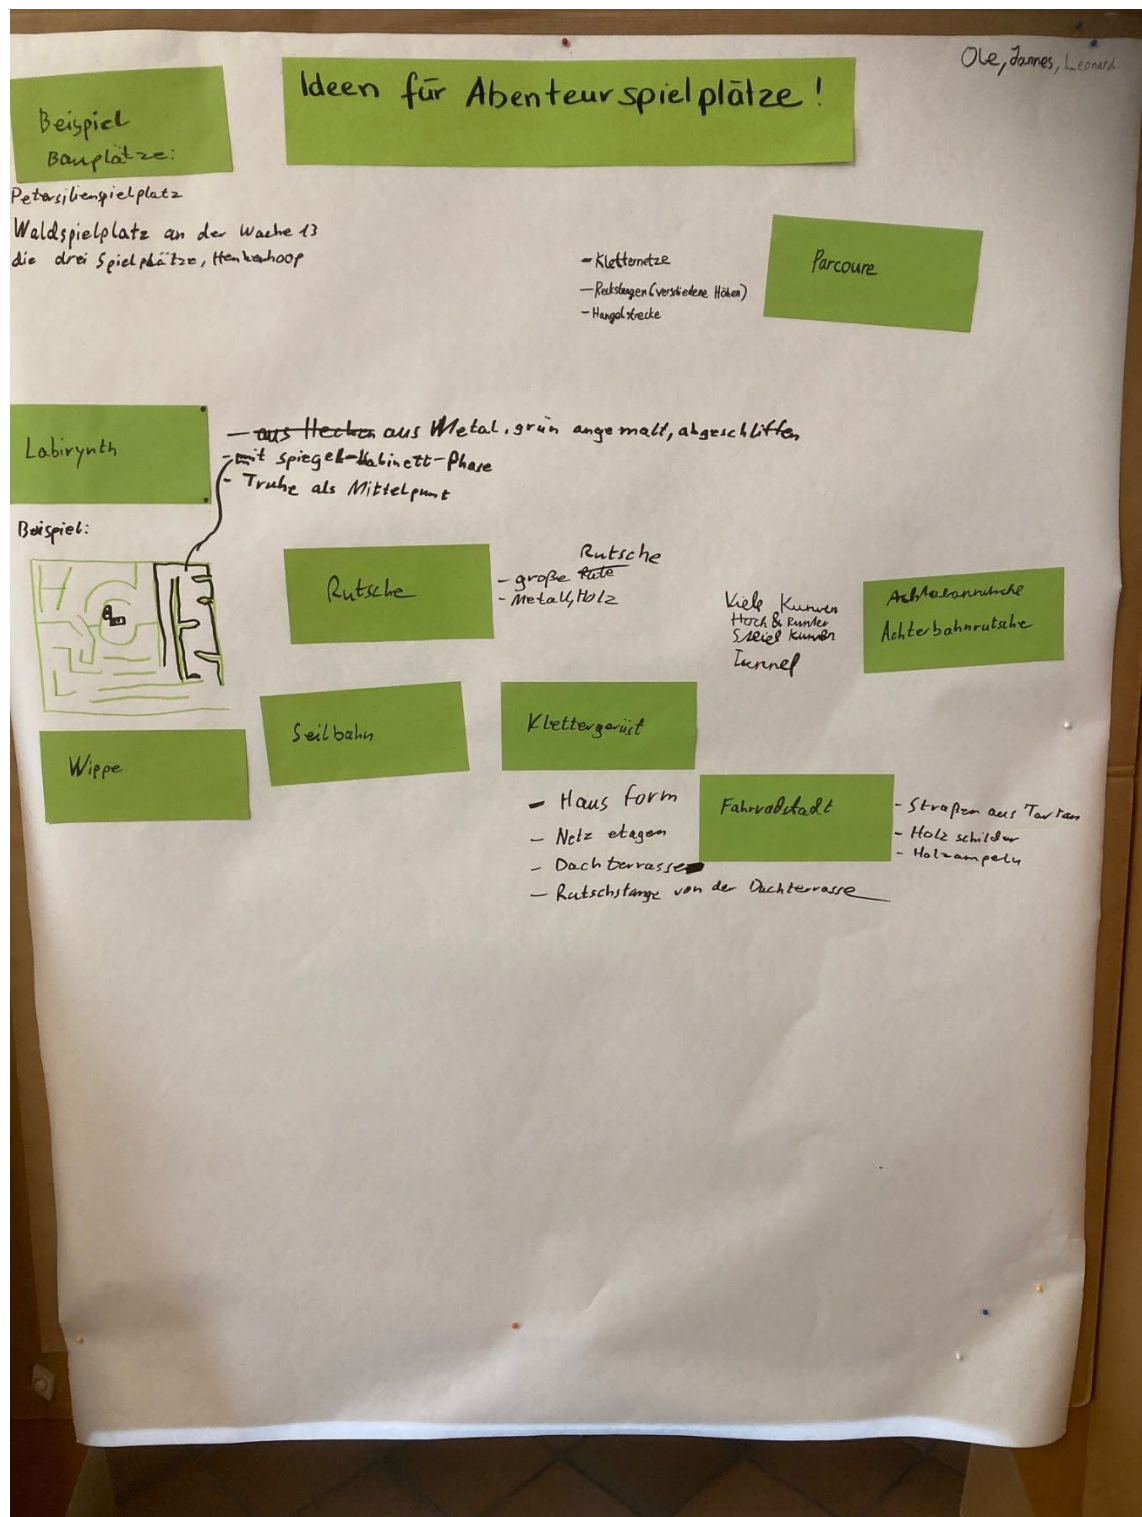 Ole, Jannes, Leonard
Ideen für Abenteurspielplätze!
Beispiel
Bauplätze:
Petersilienspielplatz
Waldspielplatz an der Wache 13
die drei Spielplätze, Henkenhoop
Parcoure
- Kletternetze
- Reckstangen (verschiedene Höhen)
- Hangelstrecke
Labirynth
- aus Hecken aus Metal, grün angemalt, abgeschliffen
- mit Spiegel-Kabinett-Phase
- Truhe als Mittelpunt
Beispiel:
Rutsche
Rutsche
- große
- Metall, Holz
Achterbahnrutsche
Viele Kurven
Hoch & Runter
Kurven
Tunnel
Wippe
Seilbahn
Klettergerüst
- Haus form
- Netz etagen
- Dachterrasse
- Rutschstange von der Dachterrasse
Fahrradstadt
- Straßen aus Tartan
- Holz schilder
- Holzampeln